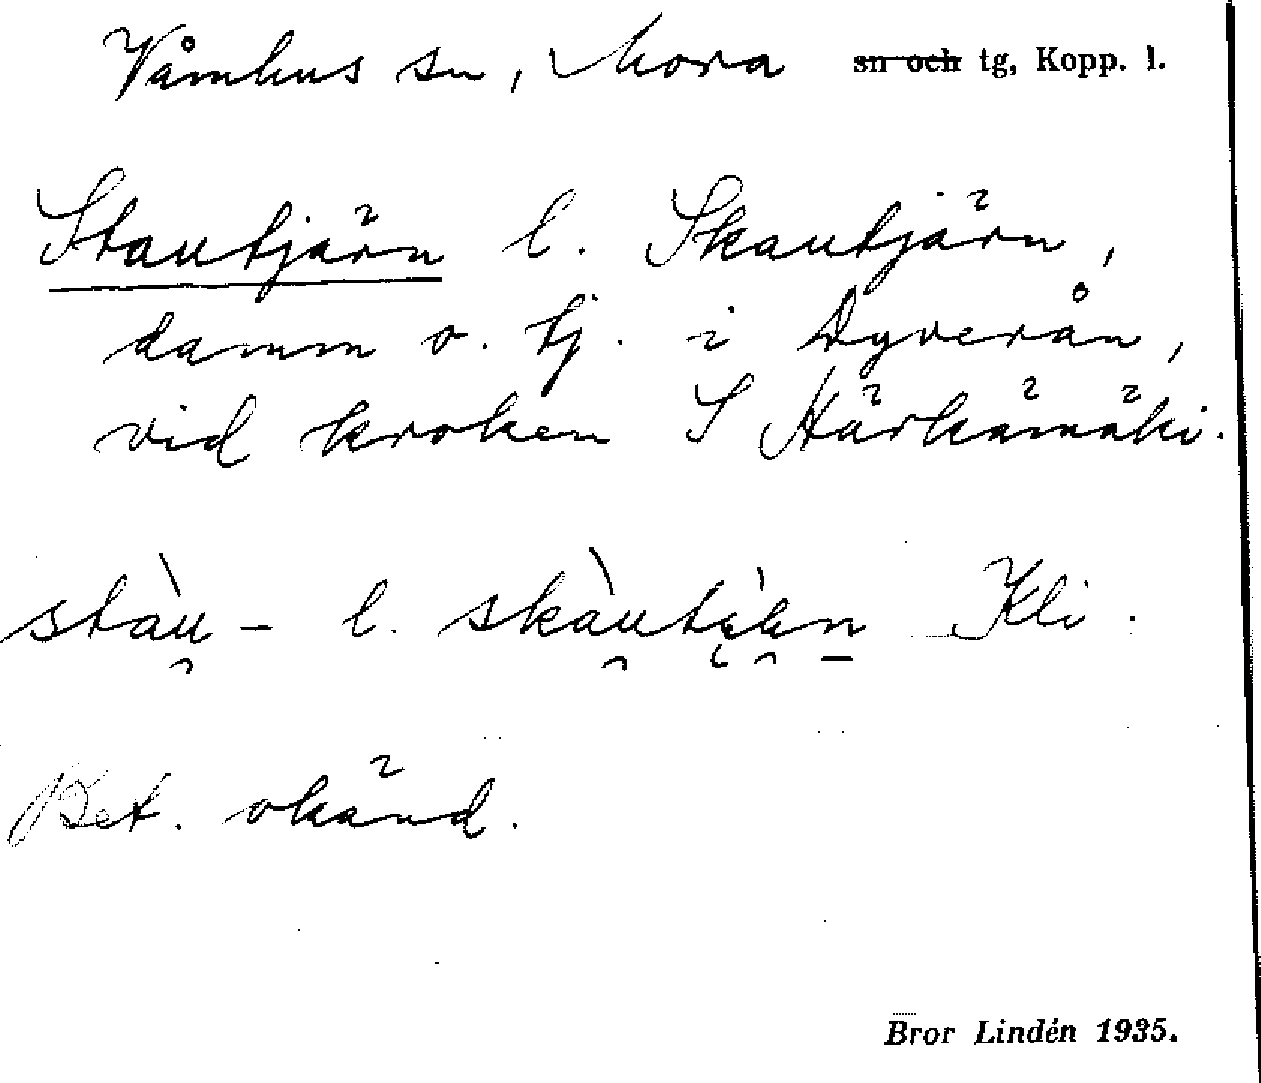 Våmhus sn, Mora sn och tg, Kopp. l.
Stautjärn l. Skautjärn,
damm o. tj. i Dyverån,
vid kroken S Härkämäki.
stàu- l. skàut Kli.
Bet. okänd.
Bror Lindén 1935.